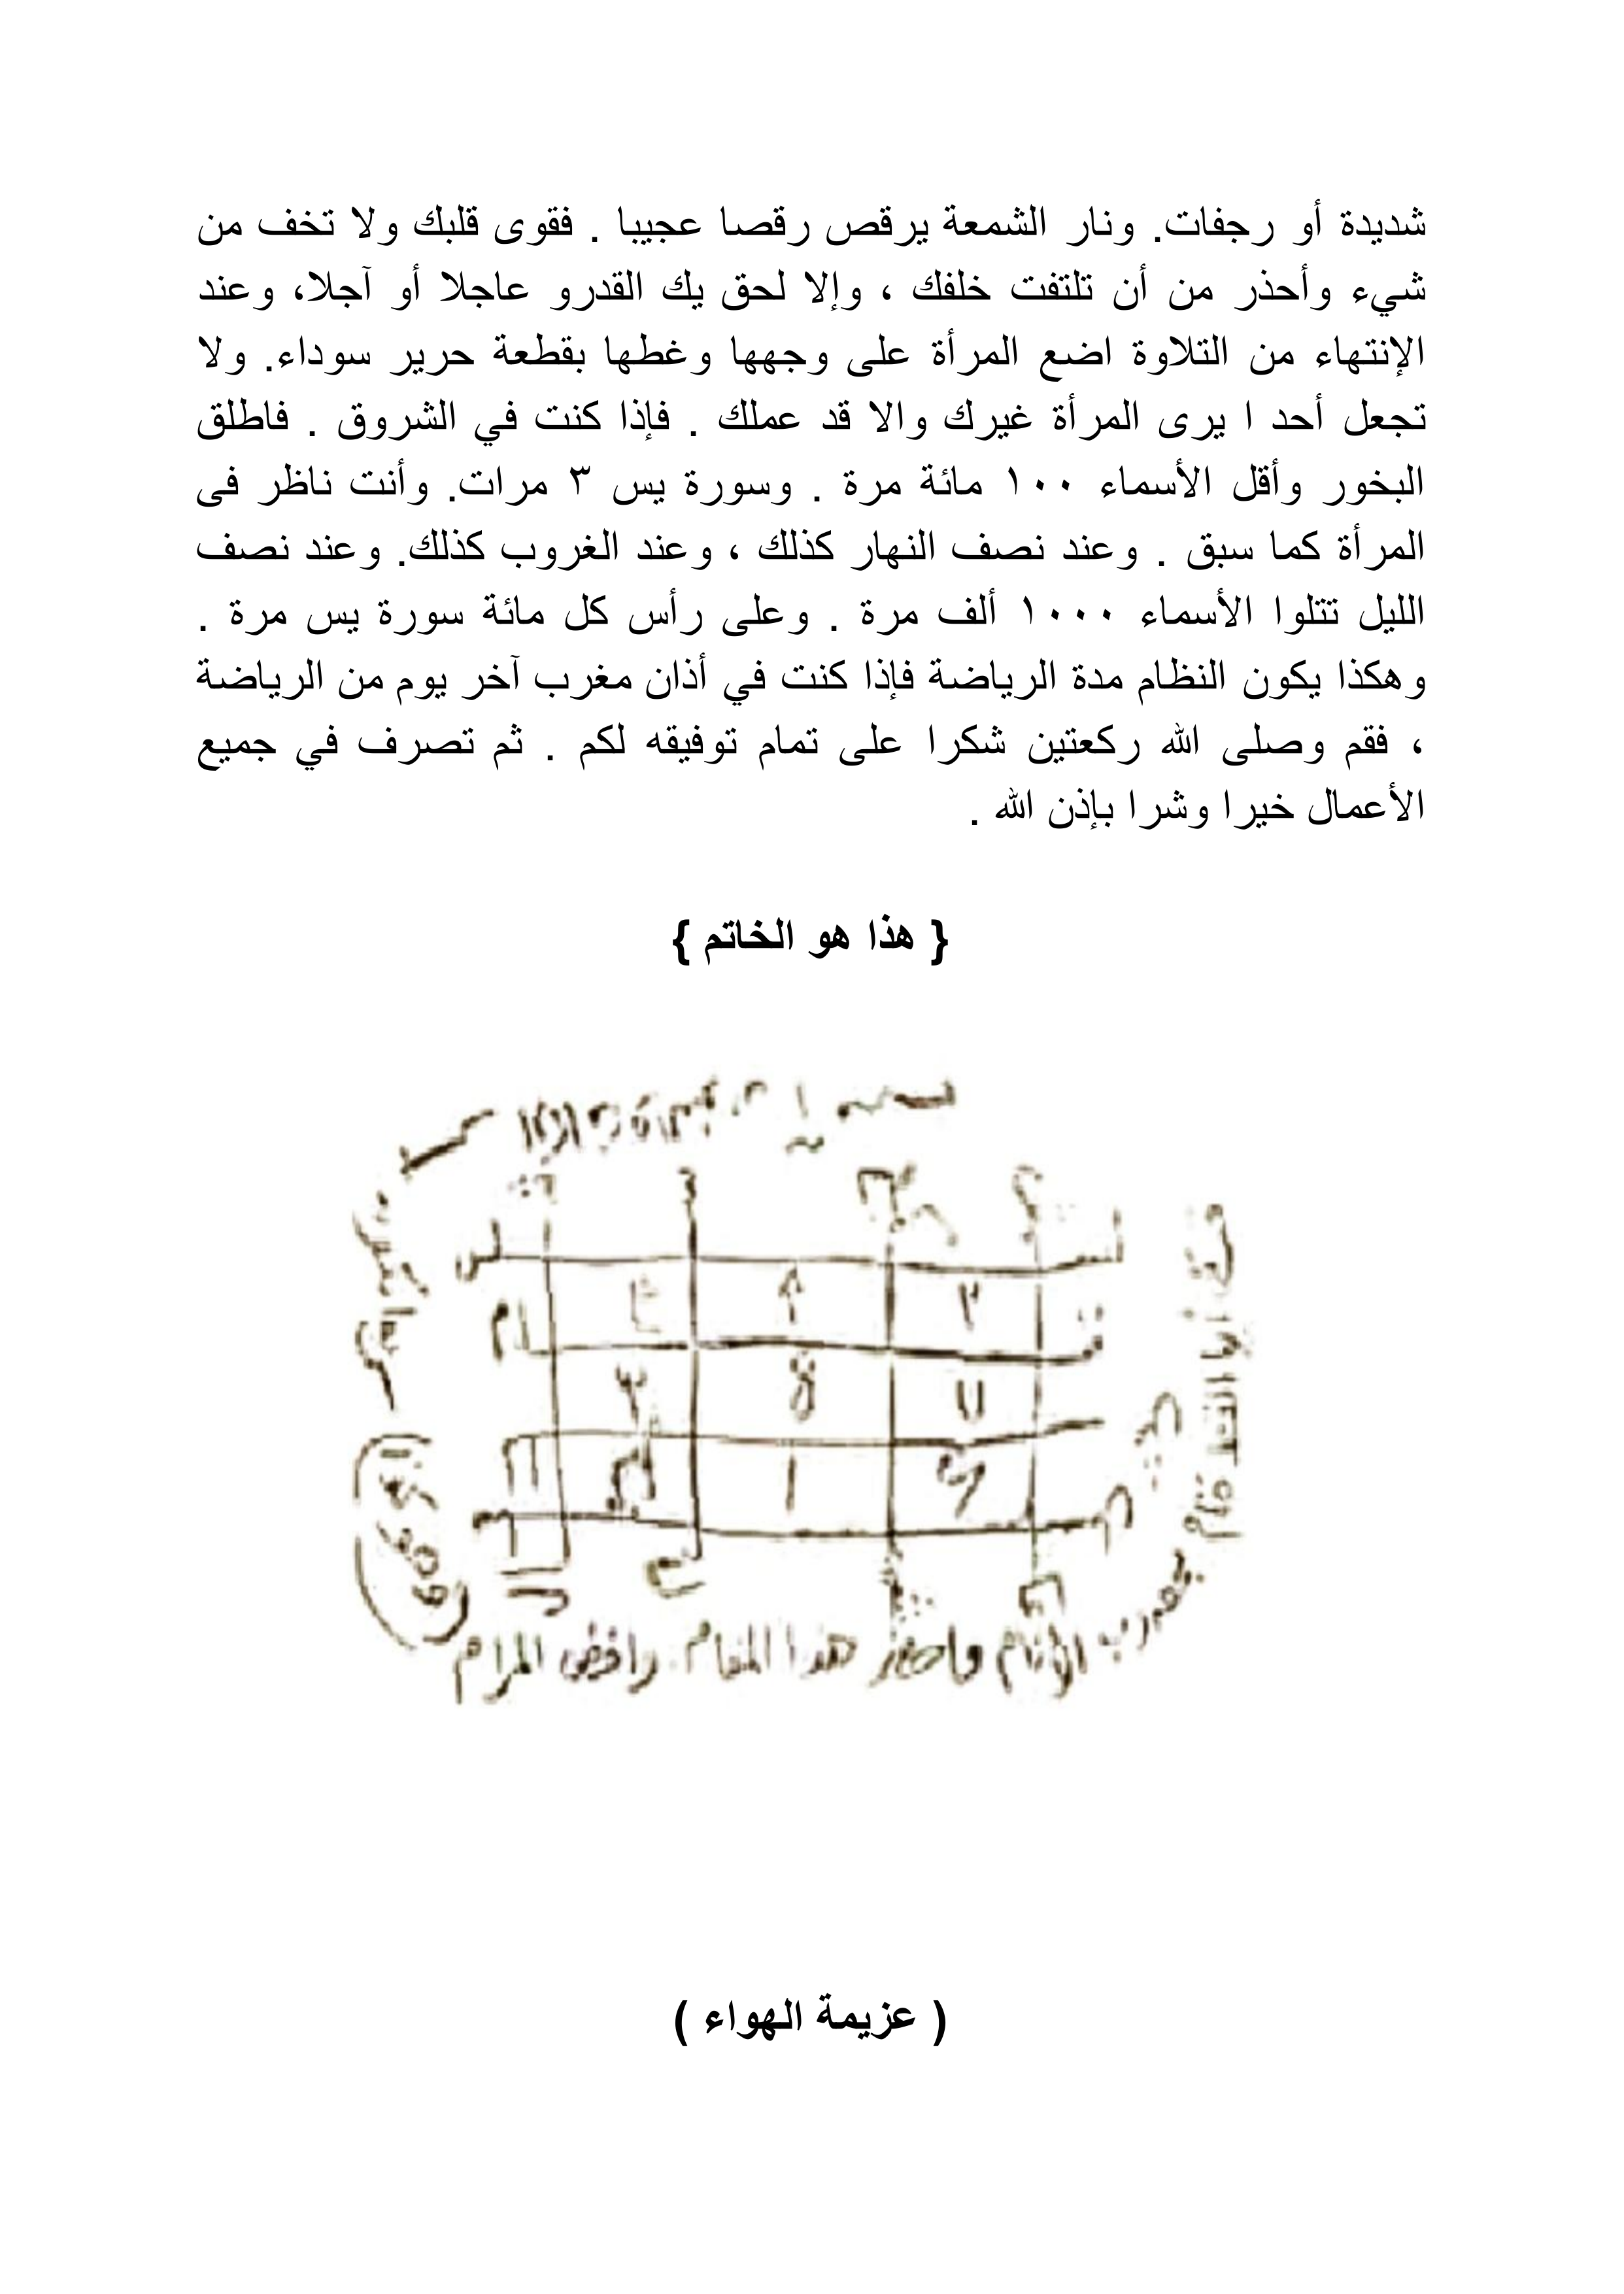 شديدة أو رجفات. ونار الشمعة يرقص رقصا عجيبا . فقوى قلبك ولا تخف من
شيء وأحذر من أن تلتفت خلفك ، وإلا لحق يك القدرو عاجلا أو آجلا، وعند
الإنتهاء من التلاوة اضع المرأة على وجهها وغطها بقطعة حرير سوداء. ولا
تجعل أحد ا يرى المرأة غيرك والا قد عملك . فإذا كنت في الشروق . فاطلق
البخور وأقل الأسماء ١٠٠ مائة مرة . وسورة يس ٣ مرات. وأنت ناظر فى
المرأة كما سبق . وعند نصف النهار كذلك ، وعند الغروب كذلك. وعند نصف
الليل تتلوا الأسماء ١٠٠٠ ألف مرة . وعلى رأس كل مائة سورة يس مرة .
وهكذا يكون النظام مدة الرياضة فإذا كنت في أذان مغرب آخر يوم من الرياضة
، فقم وصلى الله ركعتين شكرا على تمام توفيقه لكم . ثم تصرف في جميع
الأعمال خيرا وشرا بإذن الله .
{ هذا هو الخاتم }
هذا المقام
المرام
( عزيمة الهواء )